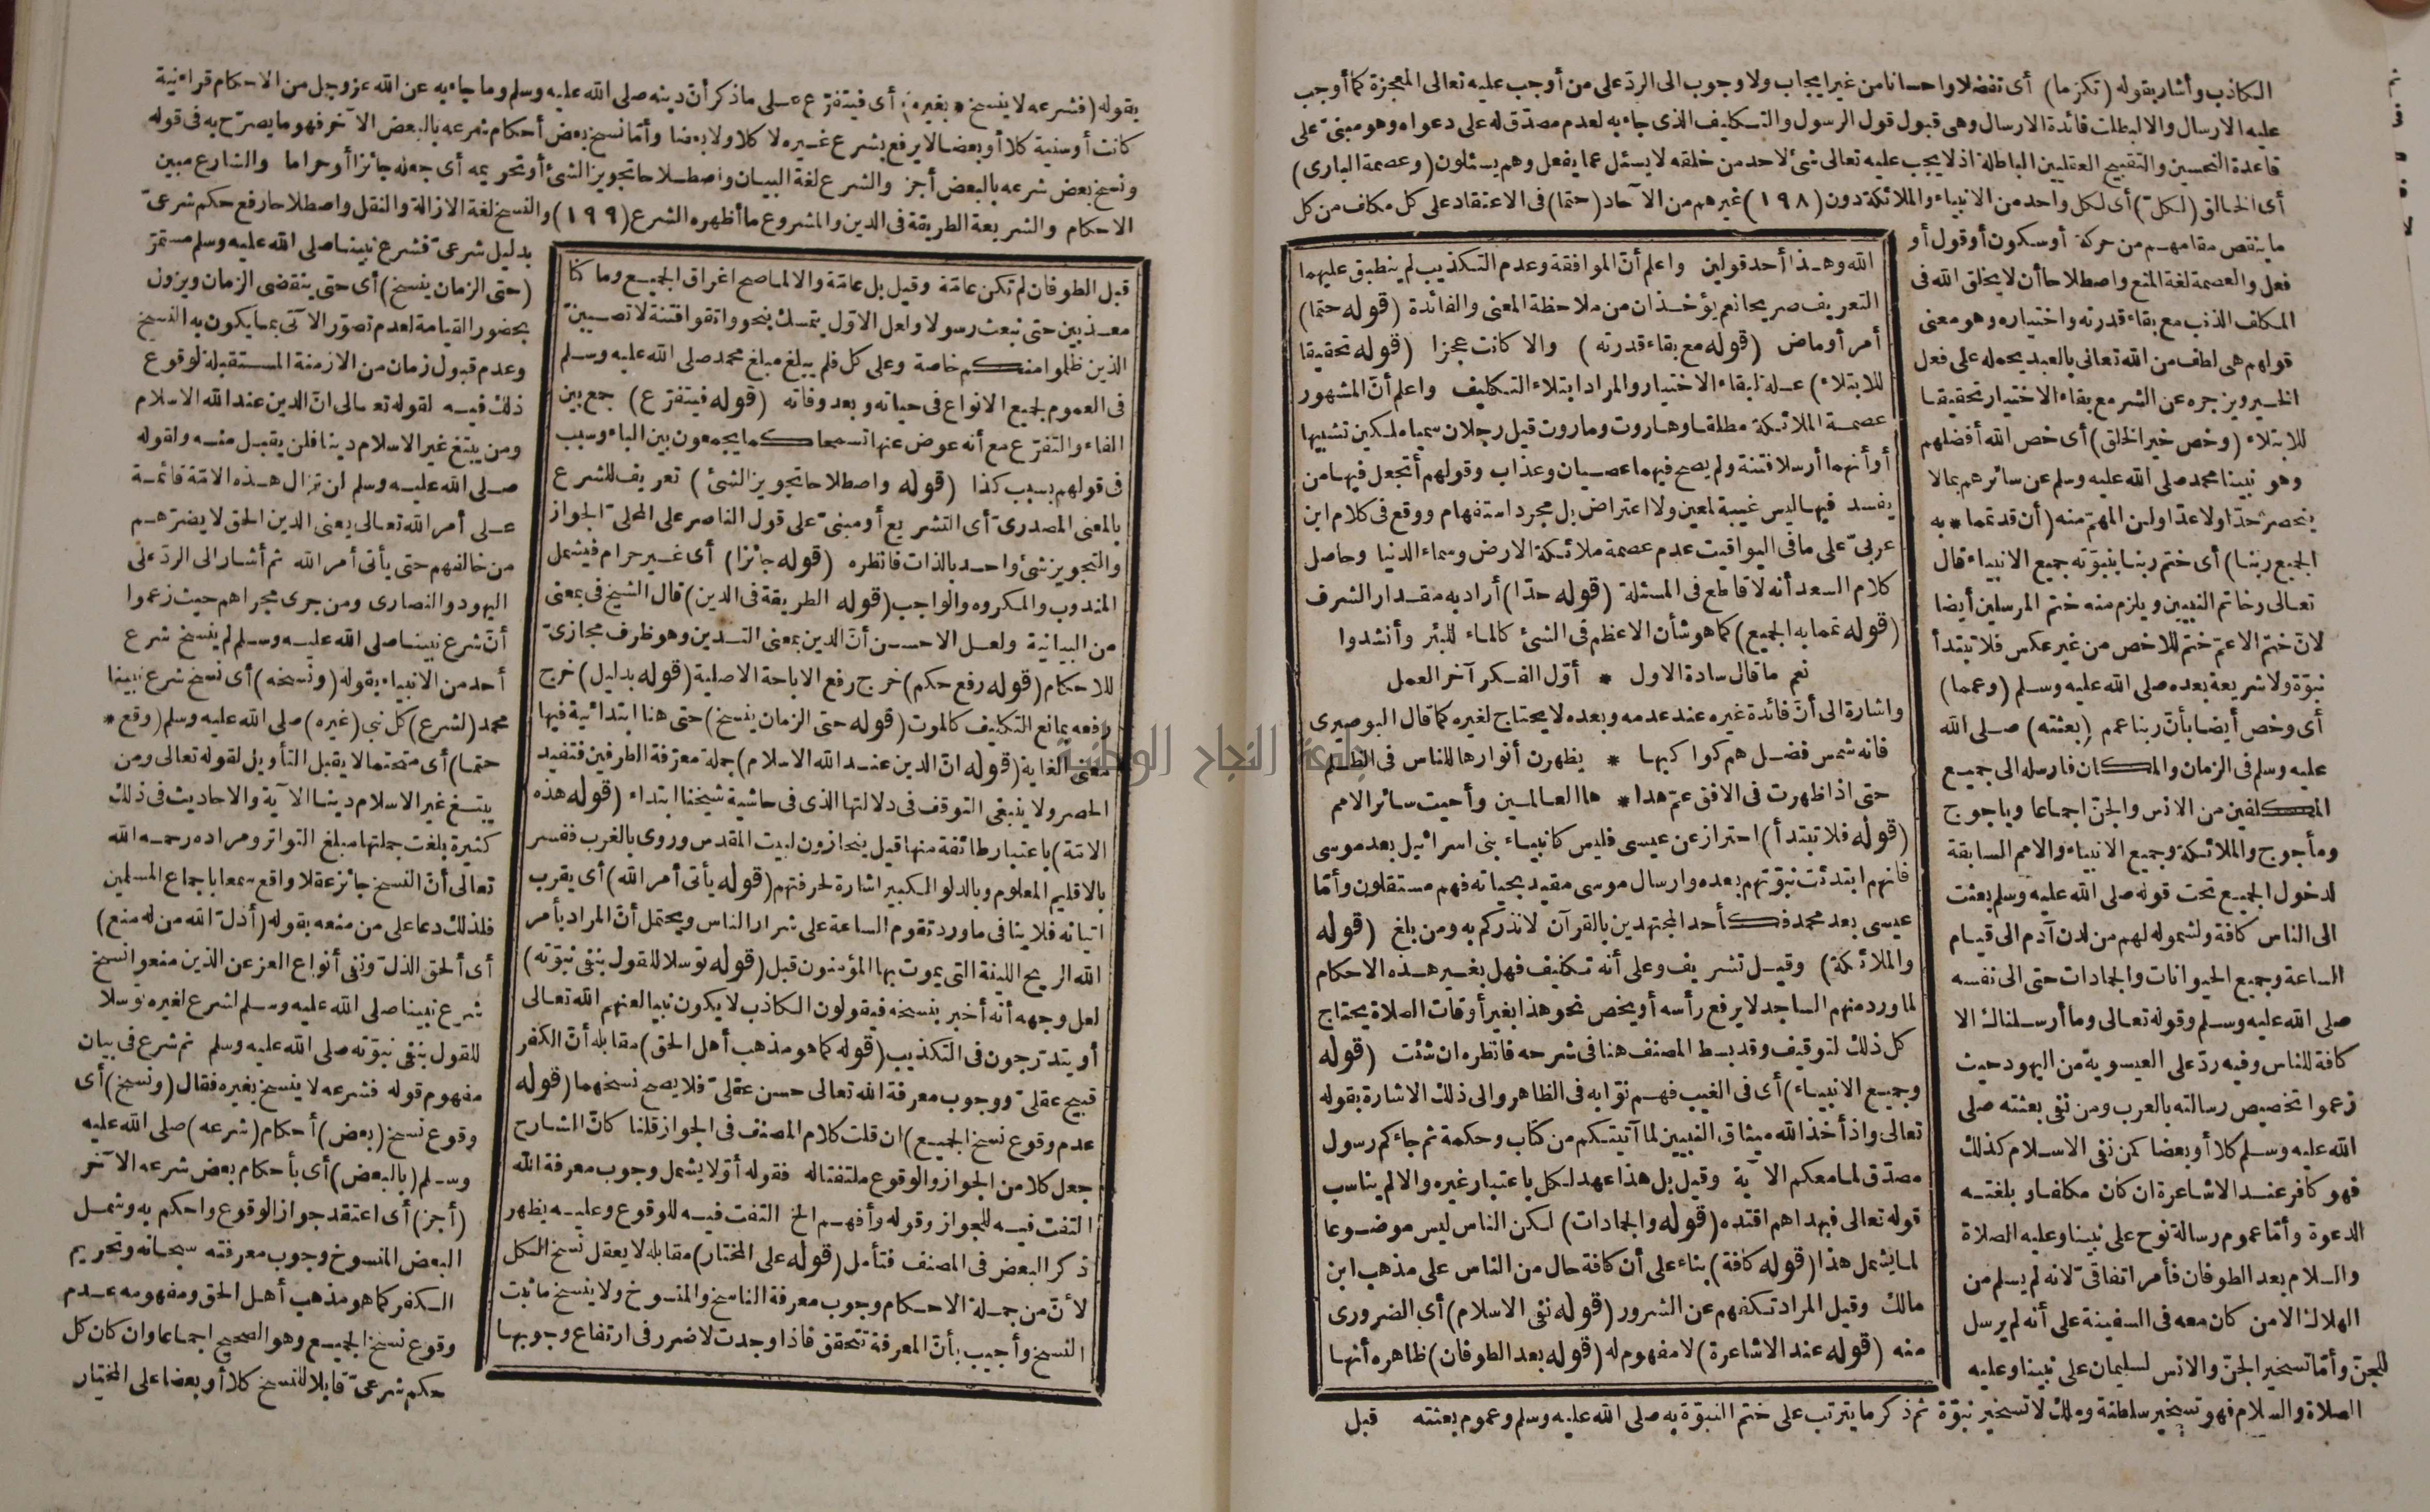 الكاذب وأشار بقوله (تكرما) أى تفضلا واحسانا من غير ايجاب ولا وجوب الى الرد على من أوجب عليه تعالى المعجزة كما أوجب
عليه الارسال والا لبطلت فائدة الارسال وهى قبول قول الرسول والتكليف الذى جاء به لعدم مصدق له على دعواه وهو مبنى على
قاعدة التحسين والتقبيح العقليين الباطلة اذ لا يجب عليه تعالى شئ لاحد من خلقه لا يسئل عما يفعل وهم يسئلون (وعصمة البارى)
أى الخالق (لكل) أى لكل واحد من الانبياء والملائكة دون (١٩٨) غيرهم من الآحاد (حتما) فى الاعتقاد على كل مكلف من كل
ما ينقص مقامهم من حركة أو سكون أو قول أو
فعل والعصمة لغة المنع واصطلاحا أن لا يخلق الله فى
المكلف الذنب مع بقاء قدرته واختياره وهو معنى
قولهم هى لطف من الله تعالى بالعبد يحمله على فعل
الخير ويزجره عن الشر مع بقاء الاختيار تحقيقا
للابتلاء (وخص خير الخلق) أى خص الله أفضلهم
وهو نبينا محمد صلى الله عليه وسلم عن سائرهم بما لا
ينحصر حدا ولا عدا ولكن المهم منه (أن قد تمما * به
الجميع ربنا) أى ختم ربنا بنبوته جميع الانبياء قال
تعالى وخاتم النبيين ويلزم منه ختم المرسلين أيضا
لان ختم الاعم ختم للاخص من غير عكس فلا تبتدأ
نبوة ولا شريعة بعده صلى الله عليه وسلم (وعمما)
أى وخص أيضا بأن ربنا عمم (بعثته) صلى الله
عليه وسلم فى الزمان والمكان فارسله الى جميع
المكلفين من الانس والجن اجماعا وياجوج
ومأجوج والملائكة وجميع الانبياء والامم السابقة
لدخول الجميع تحت قوله صلى الله عليه وسلم بعثت
الى الناس كافة ولشموله لهم من لدن آدم الى قيام
الساعة وجميع الحيوانات والجمادات حتى الى نفسه
صلى الله عليه وسلم وقوله تعالى وما أرسلناك الا
كافة للناس وفيه رد على العيسوية من اليهود حيث
زعموا تخصيص رسالته بالعرب ومن نفى بعثته صلى
الله عليه وسلم كلا أو بعضا كمن نفى الاسلام كذلك
فهو كافر عند الاشاعرة ان كان مكلفا وبلغته
الدعوة وأما عموم رسالة نوح على نبينا وعليه الصلاة
والسلام بعد الطوفان فأمر اتفاقى لانه لم يسلم من
الهلاك الا من كان معه فى السفينة على أنه لم يرسل
للجن وأما تسخير الجن والانس لسليمان على نبينا وعليه
الصلاة والسلام فهو تسخير سلطنة وملك لا تسخير نبوة ثم ذكر ما يترتب على ختم النبوة به صلى الله عليه وسلم وعموم بعثته قبل
الله وهذا أحد قولين واعلم أن الموافقة وعدم التكذيب لم ينطبق عليهما
التعريف صريحا نعم يؤخذان من ملاحظة المعنى والفائدة (قوله حتما)
أمر أو ماض (قوله مع بقاء قدرته) والا كانت عجزا (قوله تحقيقا
للابتلاء) علة لبقاء الاختيار والمراد ابتلاء التكليف واعلم أن المشهور
عصمة الملائكة مطلقا وهاروت وماروت قيل رجلان سميا ملكين تشبيها
أو أنهما أرسلا فتنة ولم يصح فيهما عصيان وعذاب وقولهم أتجعل فيها من
يفسد فيها ليس غيبة لمعين ولا اعتراض بل مجرد استفهام ووقع فى كلام ابن
عربى على ما فى اليواقيت عدم عصمة ملائكة الارض وسماء الدنيا وحاصل
كلام السعد أنه لا قاطع فى المسئلة (قوله حدا) أراد به مقدار الشرف
(قوله تمما به الجميع) كما هو شأن الاعظم فى الشئ كالماء للبئر وأنشدوا
نعم ما قال سادة الاول * أول الفكر آخر العمل
واشارة الى أن فائدة غيره عند عدمه وبعده لا يحتاج لغيره كما قال البوصيرى
فانه شمس فضل هم كواكبها * يظهرن أنوارها للناس فى الظلم
حتى اذا ظهرت فى الافق عم هدا * ها العالمين وأحيت سائر الامم
(قوله فلا تبتدأ) احتراز عن عيسى فليس كانبياء بنى اسرائيل بعد موسى
فانهم ابتدئت نبوتهم بعده وارسال موسى مقيد بحياته فهم مستقلون وأما
عيسى بعد محمد فكأحد المجتهدين بالقرآن لانذركم به ومن بلغ (قوله
والملائكة) وقيل تشريف وعلى أنه تكليف فهل بغير هذه الاحكام
لما ورد منهم الساجد لا يرفع رأسه أو يخص نحو هذا بغير أوقات الصلاة يحتاج
كل ذلك لتوقيف وقد بسط المصنف هنا فى شرحه فانظره ان شئت (قوله
وجميع الانبياء) أى فى الغيب فهم نوابه فى الظاهر والى ذلك الاشارة بقوله
تعالى واذ أخذ الله ميثاق النبيين لما آتيتكم من كتاب وحكمة ثم جاءكم رسول
مصدق لما معكم الآية وقيل بل هذا عهد لكل باعتبار غيره والا لم يناسب
قوله تعالى فبهداهم اقتده (قوله والجمادات) لكن الناس ليس موضوعا
لما يشمل هذا (قوله كافة) بناء على أن كافة حال من الناس على مذهب ابن
مالك وقيل المراد تكفهم عن الشرور (قوله نفى الاسلام) أى الضرورى
منه (قوله عند الاشاعرة) لا مفهوم له (قوله بعد الطوفان) ظاهره أنها
بقوله (فشرعه لا ينسخ * بغيره) أى فيتفرع على ما ذكر أن دينه صلى الله عليه وسلم وما جاء به عن الله عز وجل من الاحكام قرآنية
كانت أو سنية كلا أو بعضا لا يرفع بشرع غيره لا كلا ولا بعضا وأما نسخ بعض أحكام شرعه بالبعض الآخر فهو ما يصرح به فى قوله
ونسخ بعض شرعه بالبعض أجز والشرع لغة البيان واصطلاحا تجويز الشئ أو تحريمه أى جعله جائزا أو حراما والشارع مبين
الاحكام والشريعة الطريقة فى الدين والمشروع ما أظهره الشرع (١٩٩) والنسخ لغة الازالة والنقل واصطلاحا رفع حكم شرعى
بدليل شرعى فشرع نبينا صلى الله عليه وسلم مستمر
(حتى الزمان ينسخ) أى حتى ينقضى الزمان ويزول
بحضور القيامة لعدم تصور الآتى بما يكون به النسخ
وعدم قبول زمان من الازمنة المستقبلة لوقوع
ذلك فيه لقوله تعالى ان الدين عند الله الاسلام
ومن يبتغ غير الاسلام دينا فلن يقبل منه ولقوله
صلى الله عليه وسلم لن تزال هذه الامة قائمة
على أمر الله تعالى يعنى الدين الحق لا يضرهم
من خالفهم حتى يأتى أمر الله ثم أشار الى الرد على
اليهود والنصارى ومن جرى مجراهم حيث زعموا
أن شرع نبينا صلى الله عليه وسلم لم ينسخ شرع
أحد من الانبياء بقوله (ونسخه) أى نسخ شرع نبينا
محمد (لشرع) كل نبى (غيره) صلى الله عليه وسلم (وقع *
حتما) أى متحتما لا يقبل التأويل لقوله تعالى ومن
يبتغ غير الاسلام دينا الآية والاحاديث فى ذلك
كثيرة بلغت جملتها مبلغ التواتر ومراده رحمه الله
تعالى أن النسخ جائز عقلا واقع سمعا باجماع المسلمين
فلذلك دعا على من منعه بقوله (أذل الله من له منع)
أى ألحق الذل ونفى أنواع العز عن الذين منعوا نسخ
شرع نبينا صلى الله عليه وسلم لشرع لغيره توسلا
للقول بنفى نبوته صلى الله عليه وسلم ثم شرع فى بيان
مفهوم قوله فشرعه لا ينسخ بغيره فقال (ونسخ) أى
وقوع نسخ (بعض) أحكام (شرعه) صلى الله عليه
وسلم (بالبعض) أى بأحكام بعض شرعه الآخر
(أجز) أى اعتقد جواز الوقوع واحكم به وشمل
البعض المنسوخ وجوب معرفته سبحانه وتحريم
الكفر كما هو مذهب أهل الحق ومفهومه عدم
وقوع نسخ الجميع وهو الصحيح اجماعا وان كان كل
حكم شرعى قابلا للنسخ كلا أو بعضا على المختار
قبل الطوفان لم تكن عامة وقيل بل عامة والا لما صح اغراق الجميع وما كنا
معذبين حتى نبعث رسولا ولعل الاول يتمسك بنحو واتقوا فتنة لا تصيبن
الذين ظلموا منكم خاصة وعلى كل فلم يبلغ مبلغ محمد صلى الله عليه وسلم
فى العموم لجميع الانواع فى حياته وبعد وفاته (قوله فيتفرع) جمع بين
الفاء والتفرع مع أنه عوض عنها تسمحا كما يجمعون بين الباء وسبب
فى قولهم بسبب كذا (قوله واصطلاحا تجويز الشئ) تعريف للشرع
بالمعنى المصدرى أى التشريع أو مبنى على قول الناصر على المحلى الجواز
والتجويز شئ واحد بالذات فانظره (قوله جائزا) أى غير حرام فيشمل
المندوب والمكروه والواجب (قوله الطريقة فى الدين) قال الشيخ فى بمعنى
من البيانية ولعل الاحسن أن الدين بمعنى التدين وهو ظرف مجازى
للاحكام (قوله رفع حكم) خرج رفع الاباحة الاصلية (قوله بدليل) خرج
رفعه بمانع التكليف كالموت (قوله حتى الزمان ينسخ) حتى هنا ابتدائية فيها
معنى الغاية (قوله ان الدين عند الله الاسلام) جملة معرفة الطرفين فتفيد
الحصر ولا ينبغى التوقف فى دلالتها الذى فى حاشية شيخنا ابتداء (قوله هذه
الامة) باعتبار طائفة منها قيل ينحازون لبيت المقدس وروى بالغرب ففسر
بالاقليم المعلوم وبالدلو الكبير اشارة لحرفتهم (قوله يأتى أمر الله) أى يقرب
اتيانه فلا ينافى ما ورد تقوم الساعة على شرار الناس ويحتمل أن المراد بأمر
الله الريح اللينة التى يموت بها المؤمنون قبل (قوله توسلا للقول بنفى نبوته)
لعل وجهه أنه أخبر بنسخه فيقولون الكاذب لا يكون نبيا لعنهم الله تعالى
أو يتدرجون فى التكذيب (قوله كما هو مذهب أهل الحق) مقابله أن الكفر
قبيح عقلى ووجوب معرفة الله تعالى حسن عقلى فلا يصح نسخهما (قوله
عدم وقوع نسخ الجميع) ان قلت كلام المصنف فى الجواز قلنا كان الشارح
جعل كلا من الجواز والوقوع ملتفتا له فقوله أولا يشمل وجوب معرفة الله
التفت فيه للجواز وقوله وأفهم الخ التفت فيه للوقوع وعليه يظهر
ذكر البعض فى المصنف فتأمل (قوله على المختار) مقابله لا يعقل نسخ الكل
لأن من جملة الاحكام وجوب معرفة الناسخ والمنسوخ ولا ينسخ ما ثبت
النسخ وأجيب بأن المعرفة تتحقق فاذا وجدت لا ضرر فى ارتفاع وجوبها
جامعة النجاح الوطنية